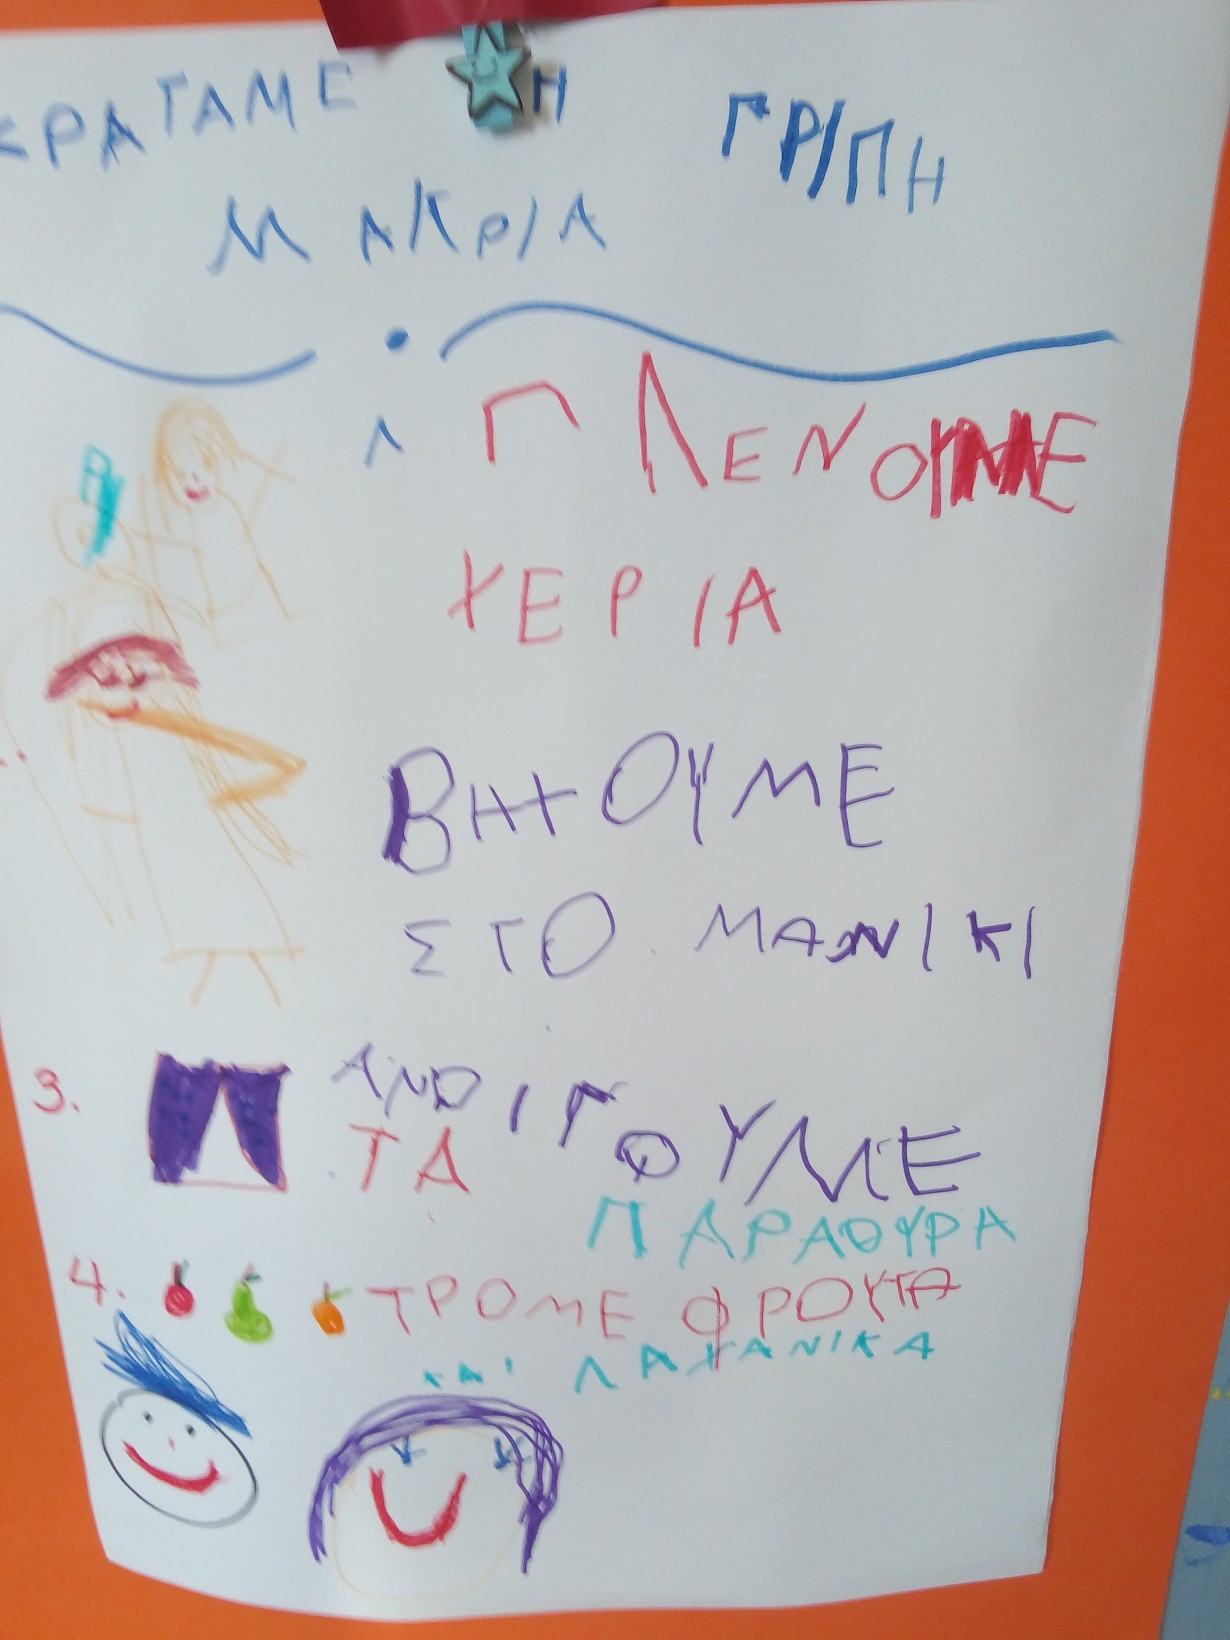 ΚΡΑΤΑΜΕ Η ΓΡΙΠΗ
ΜΑΚΡΙΑ
ΠΛΕΝΟΥΜΕ
ΧΕΡΙΑ
ΒΗΧΟΥΜΕ
ΣΤΟ ΜΑΝΙΚΙ
3. ΑΝΟΙΓΟΥΜΕ
ΤΑ
ΠΑΡΑΘΥΡΑ
4. ΤΡΟΜΕ ΦΡΟΥΤΑ
ΚΑΙ ΛΑΧΑΝΙΚΑ